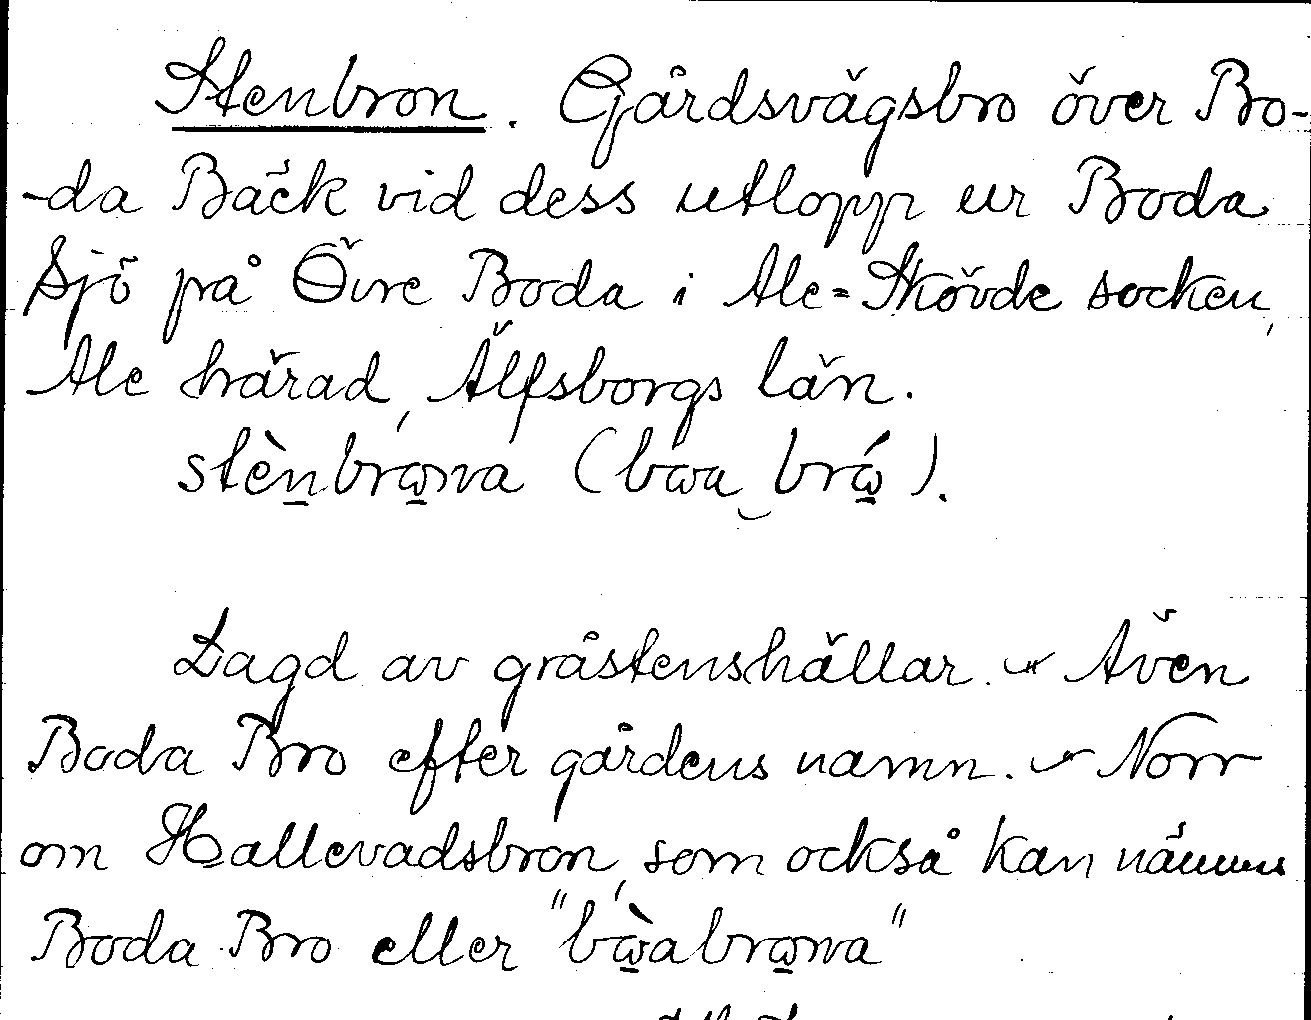 Stenbron. Gårdsvägsbro över Bo-
-da Bäck vid dess utlopp ur Boda
Sjö på Övre Boda i Ale-Skövde socken,
Ale härad, Älfsborgs län.
stènbrɷna (bɷa brɷ́).
Lagd av gråstenshällar. - Även
Boda Bro efter gårdens namn. - Norr
om Hallevadsbron, som också kan nämnas
Boda Bro eller "bɷ̀abrɷna"